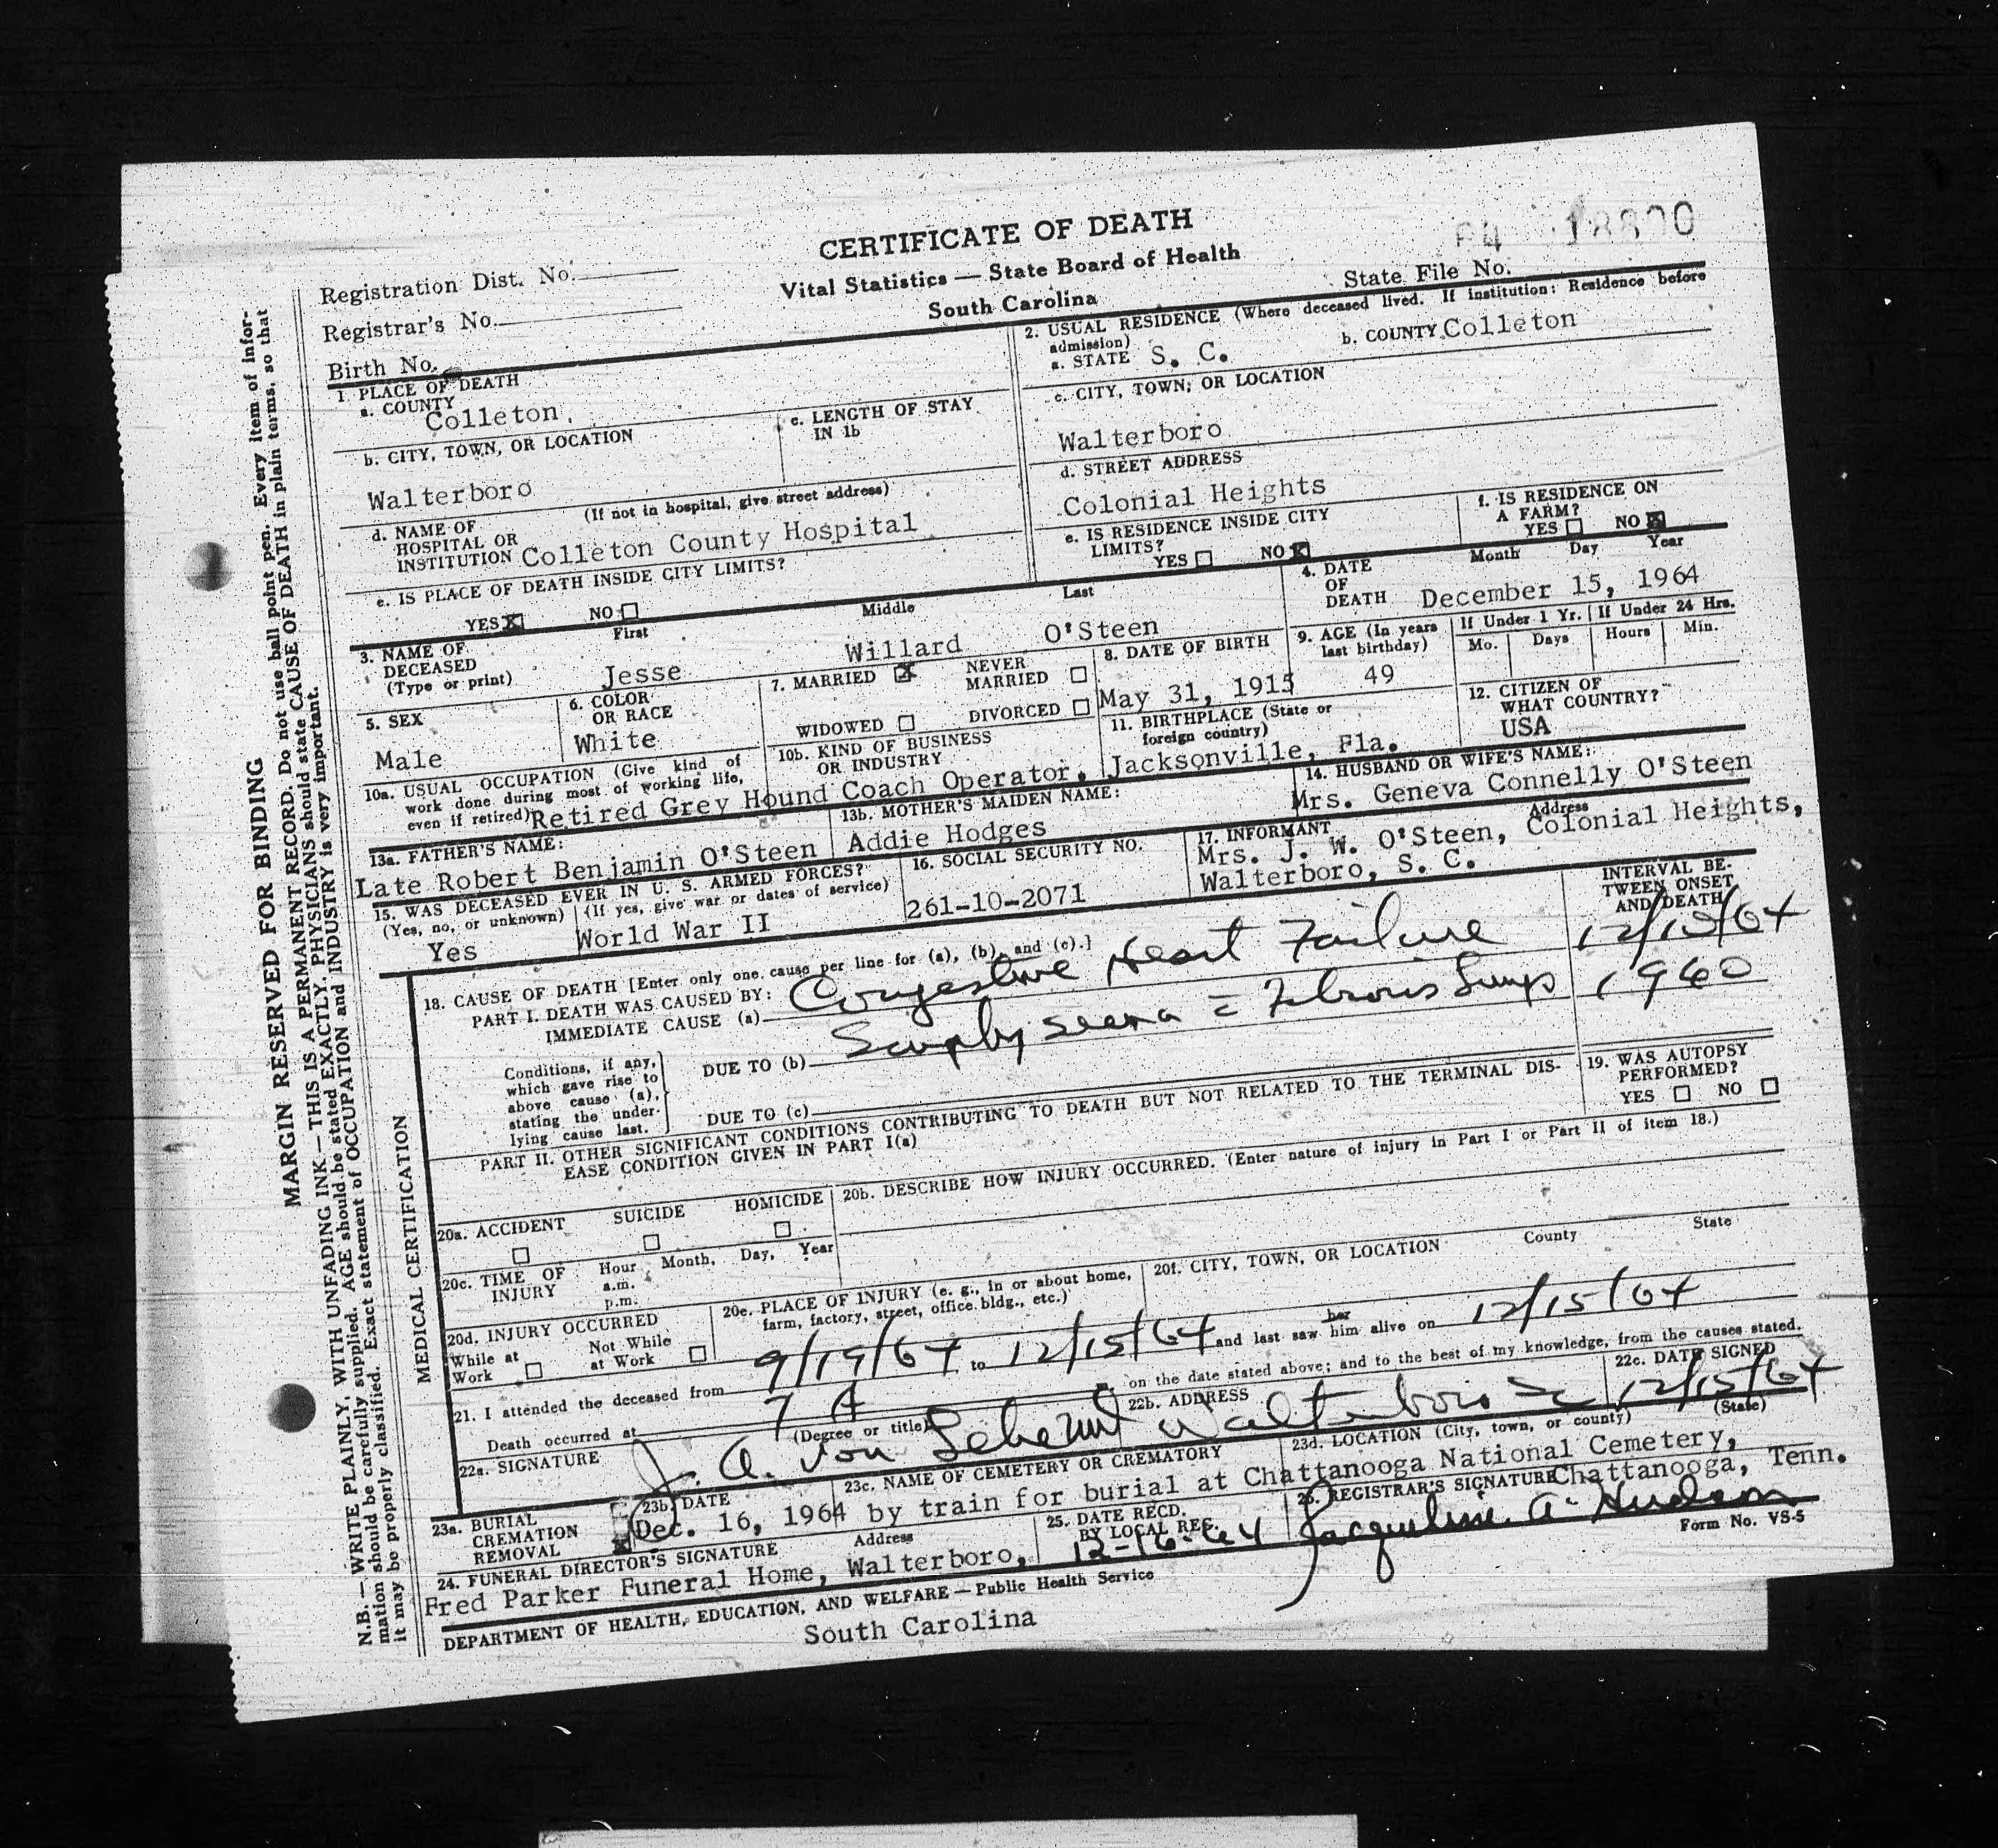 CERTIFICATE OF DEATH
Vital Statistics — State Board of Health
South Carolina
Registration Dist. No.
Registrar's No.
Birth No.
State File No.
MARGIN RESERVED FOR BINDING
N.B.—WRITE PLAINLY, WITH UNFADING INK—THIS IS A PERMANENT RECORD. Do not use ball point pen. Every item of infor-
mation should be carefully supplied. AGE should be stated EXACTLY. PHYSICIANS should state CAUSE OF DEATH in plain terms, so that
it may be properly classified. Exact statement of OCCUPATION and INDUSTRY is very important.
1. PLACE OF DEATH
a. COUNTY
Colleton
b. CITY, TOWN, OR LOCATION
Walterboro
c. LENGTH OF STAY
IN 1b
d. NAME OF (If not in hospital, give street address)
HOSPITAL OR
INSTITUTION Colleton County Hospital
e. IS PLACE OF DEATH INSIDE CITY LIMITS?
YES X NO
2. USUAL RESIDENCE (Where deceased lived. If institution: Residence before
admission)
a. STATE S. C. b. COUNTY Colleton
c. CITY, TOWN, OR LOCATION
Walterboro
d. STREET ADDRESS
Colonial Heights
e. IS RESIDENCE INSIDE CITY
LIMITS?
YES NO X
f. IS RESIDENCE ON
A FARM?
YES NO X
3. NAME OF
DECEASED
(Type or print)
First Middle Last
Jesse Willard O'Steen
4. DATE
OF
DEATH
Month Day Year
December 15, 1964
5. SEX
Male
6. COLOR
OR RACE
White
7. MARRIED X NEVER
MARRIED
WIDOWED DIVORCED
8. DATE OF BIRTH
May 31, 1915
9. AGE (In years
last birthday)
49
If Under 1 Yr. If Under 24 Hrs.
Mo. Days Hours Min.
10a. USUAL OCCUPATION (Give kind of
work done during most of working life,
even if retired)
10b. KIND OF BUSINESS
OR INDUSTRY
Retired Grey Hound Coach Operator.
11. BIRTHPLACE (State or
foreign country)
Jacksonville, Fla.
12. CITIZEN OF
WHAT COUNTRY?
USA
13a. FATHER'S NAME:
Late Robert Benjamin O'Steen
13b. MOTHER'S MAIDEN NAME:
Addie Hodges
14. HUSBAND OR WIFE'S NAME:
Mrs. Geneva Connelly O'Steen
15. WAS DECEASED EVER IN U. S. ARMED FORCES?
(Yes, no, or unknown) (If yes, give war or dates of service)
Yes World War II
16. SOCIAL SECURITY NO.
261-10-2071
17. INFORMANT Address
Mrs. J. W. O'Steen, Colonial Heights,
Walterboro, S. C.
MEDICAL CERTIFICATION
18. CAUSE OF DEATH [Enter only one cause per line for (a), (b), and (c).]
INTERVAL BE-
TWEEN ONSET
AND DEATH
PART I. DEATH WAS CAUSED BY:
IMMEDIATE CAUSE (a) Congestive Heart Failure
Conditions, if any,
which gave rise to
above cause (a),
stating the under-
lying cause last.
DUE TO (b) Emphysema = Fibrosis Lungs 1960
DUE TO (c)
PART II. OTHER SIGNIFICANT CONDITIONS CONTRIBUTING TO DEATH BUT NOT RELATED TO THE TERMINAL DIS-
EASE CONDITION GIVEN IN PART I(a)
19. WAS AUTOPSY
PERFORMED?
YES NO
20a. ACCIDENT SUICIDE HOMICIDE
20b. DESCRIBE HOW INJURY OCCURRED. (Enter nature of injury in Part I or Part II of item 18.)
20c. TIME OF
INJURY
Hour Month, Day, Year
a.m.
p.m.
20d. INJURY OCCURRED
While at
Work
Not While
at Work
20e. PLACE OF INJURY (e. g., in or about home,
farm, factory, street, office bldg., etc.)
20f. CITY, TOWN, OR LOCATION County State
21. I attended the deceased from 9/19/64 to 12/15/64 and last saw her him alive on 12/15/64
Death occurred at 7 A on the date stated above; and to the best of my knowledge, from the causes stated.
22a. SIGNATURE (Degree or title)
J. A. von
22b. ADDRESS
Walterboro SC
22c. DATE SIGNED
12/15/64
23a. BURIAL
CREMATION
REMOVAL X
23b. DATE
23c. NAME OF CEMETERY OR CREMATORY
23d. LOCATION (City, town, or county) (State)
Dec. 16, 1964 by train for burial at Chattanooga National Cemetery,
Chattanooga, Tenn.
24. FUNERAL DIRECTOR'S SIGNATURE Address
Fred Parker Funeral Home, Walterboro,
South Carolina
25. DATE RECD.
BY LOCAL REG.
12-16-64
26. REGISTRAR'S SIGNATURE
Jacqueline A. Hudson
DEPARTMENT OF HEALTH, EDUCATION, AND WELFARE — Public Health Service
Form No. VS-5